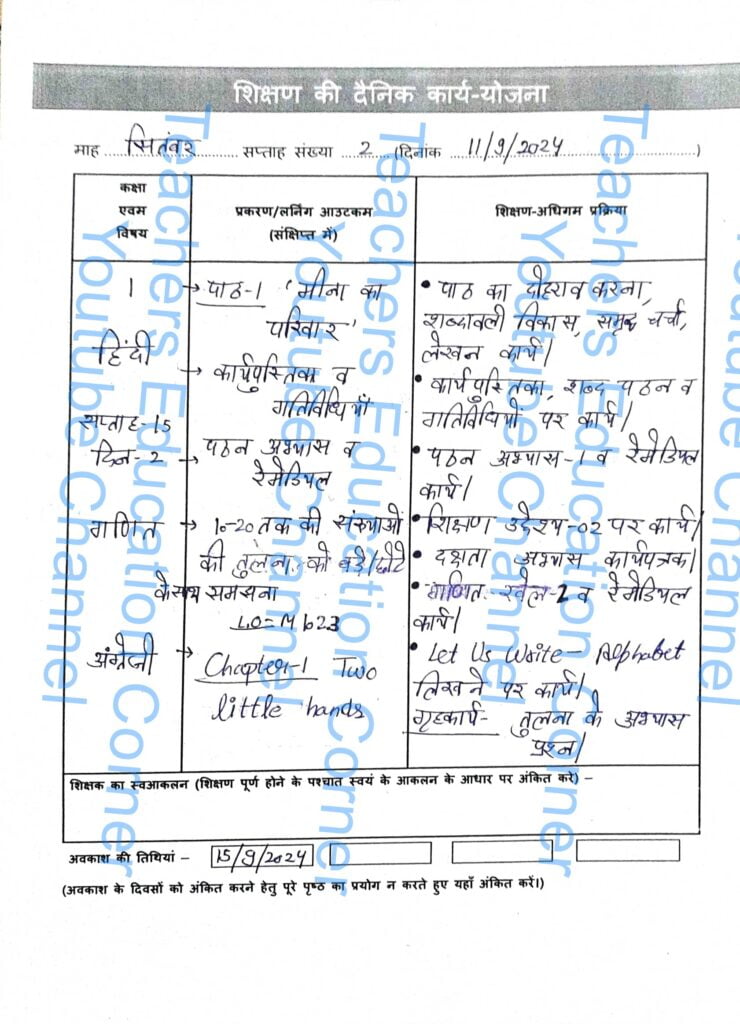 शिक्षण की दैनिक कार्य-योजना
माह ....सितंबर.... सप्ताह संख्या ...2... (दिनांक ...11/9/2024...)
कक्षा
एवम
विषय
प्रकरण/लर्निंग आउटकम
(संक्षिप्त में)
शिक्षण-अधिगम प्रक्रिया
1
हिंदी
सप्ताह-15
दिन-2
→ पाठ-1 'मीना का
परिवार'
→ कार्यपुस्तिका व
गतिविधियाँ
→ पठन अभ्यास व
रेमेडियल
• पाठ का दोहराव करना,
शब्दावली विकास, समूह चर्चा,
लेखन कार्य।
• कार्यपुस्तिका, शब्द पठन व
गतिविधियों पर कार्य।
• पठन अभ्यास-1 व रेमेडियल
कार्य।
गणित
→ 10-20 तक की संख्याओं
की तुलना को बड़े/छोटे
के साथ समझना
LO=M 623
• शिक्षण उद्देश्य-02 पर कार्य।
• दक्षता अभ्यास कार्यपत्रक।
• गणित खेल-2 व रेमेडियल
कार्य।
अंग्रेजी
→ Chapter-1 Two
little hands
• Let Us Write- Alphabet
लिखने पर कार्य।
गृहकार्य- तुलना के अभ्यास
प्रश्न।
शिक्षक का स्वआकलन (शिक्षण पूर्ण होने के पश्चात स्वयं के आकलन के आधार पर अंकित करे) –
अवकाश की तिथियां – 15/9/2024
(अवकाश के दिवसों को अंकित करने हेतु पूरे पृष्ठ का प्रयोग न करते हुए यहाँ अंकित करें।)
Teachers Education Corner
Youtube Channel
Teachers Education Corner
Youtube Channel
Teachers Education Corner
Youtube Channel